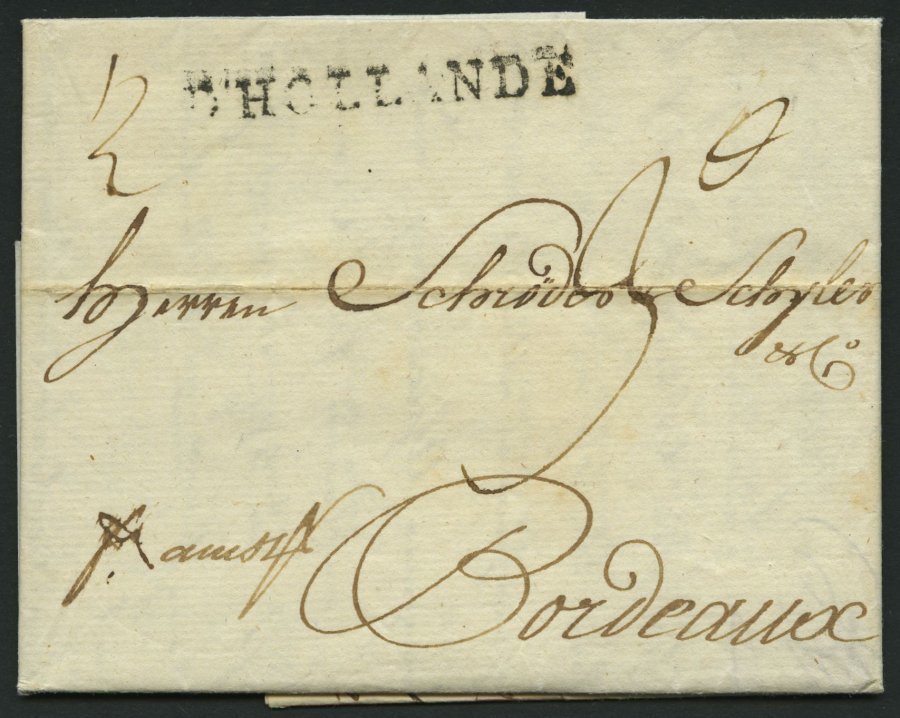 D'HOLLANDE
Herren Schröder & Schyler
& Co
fr amst
Bordeaux